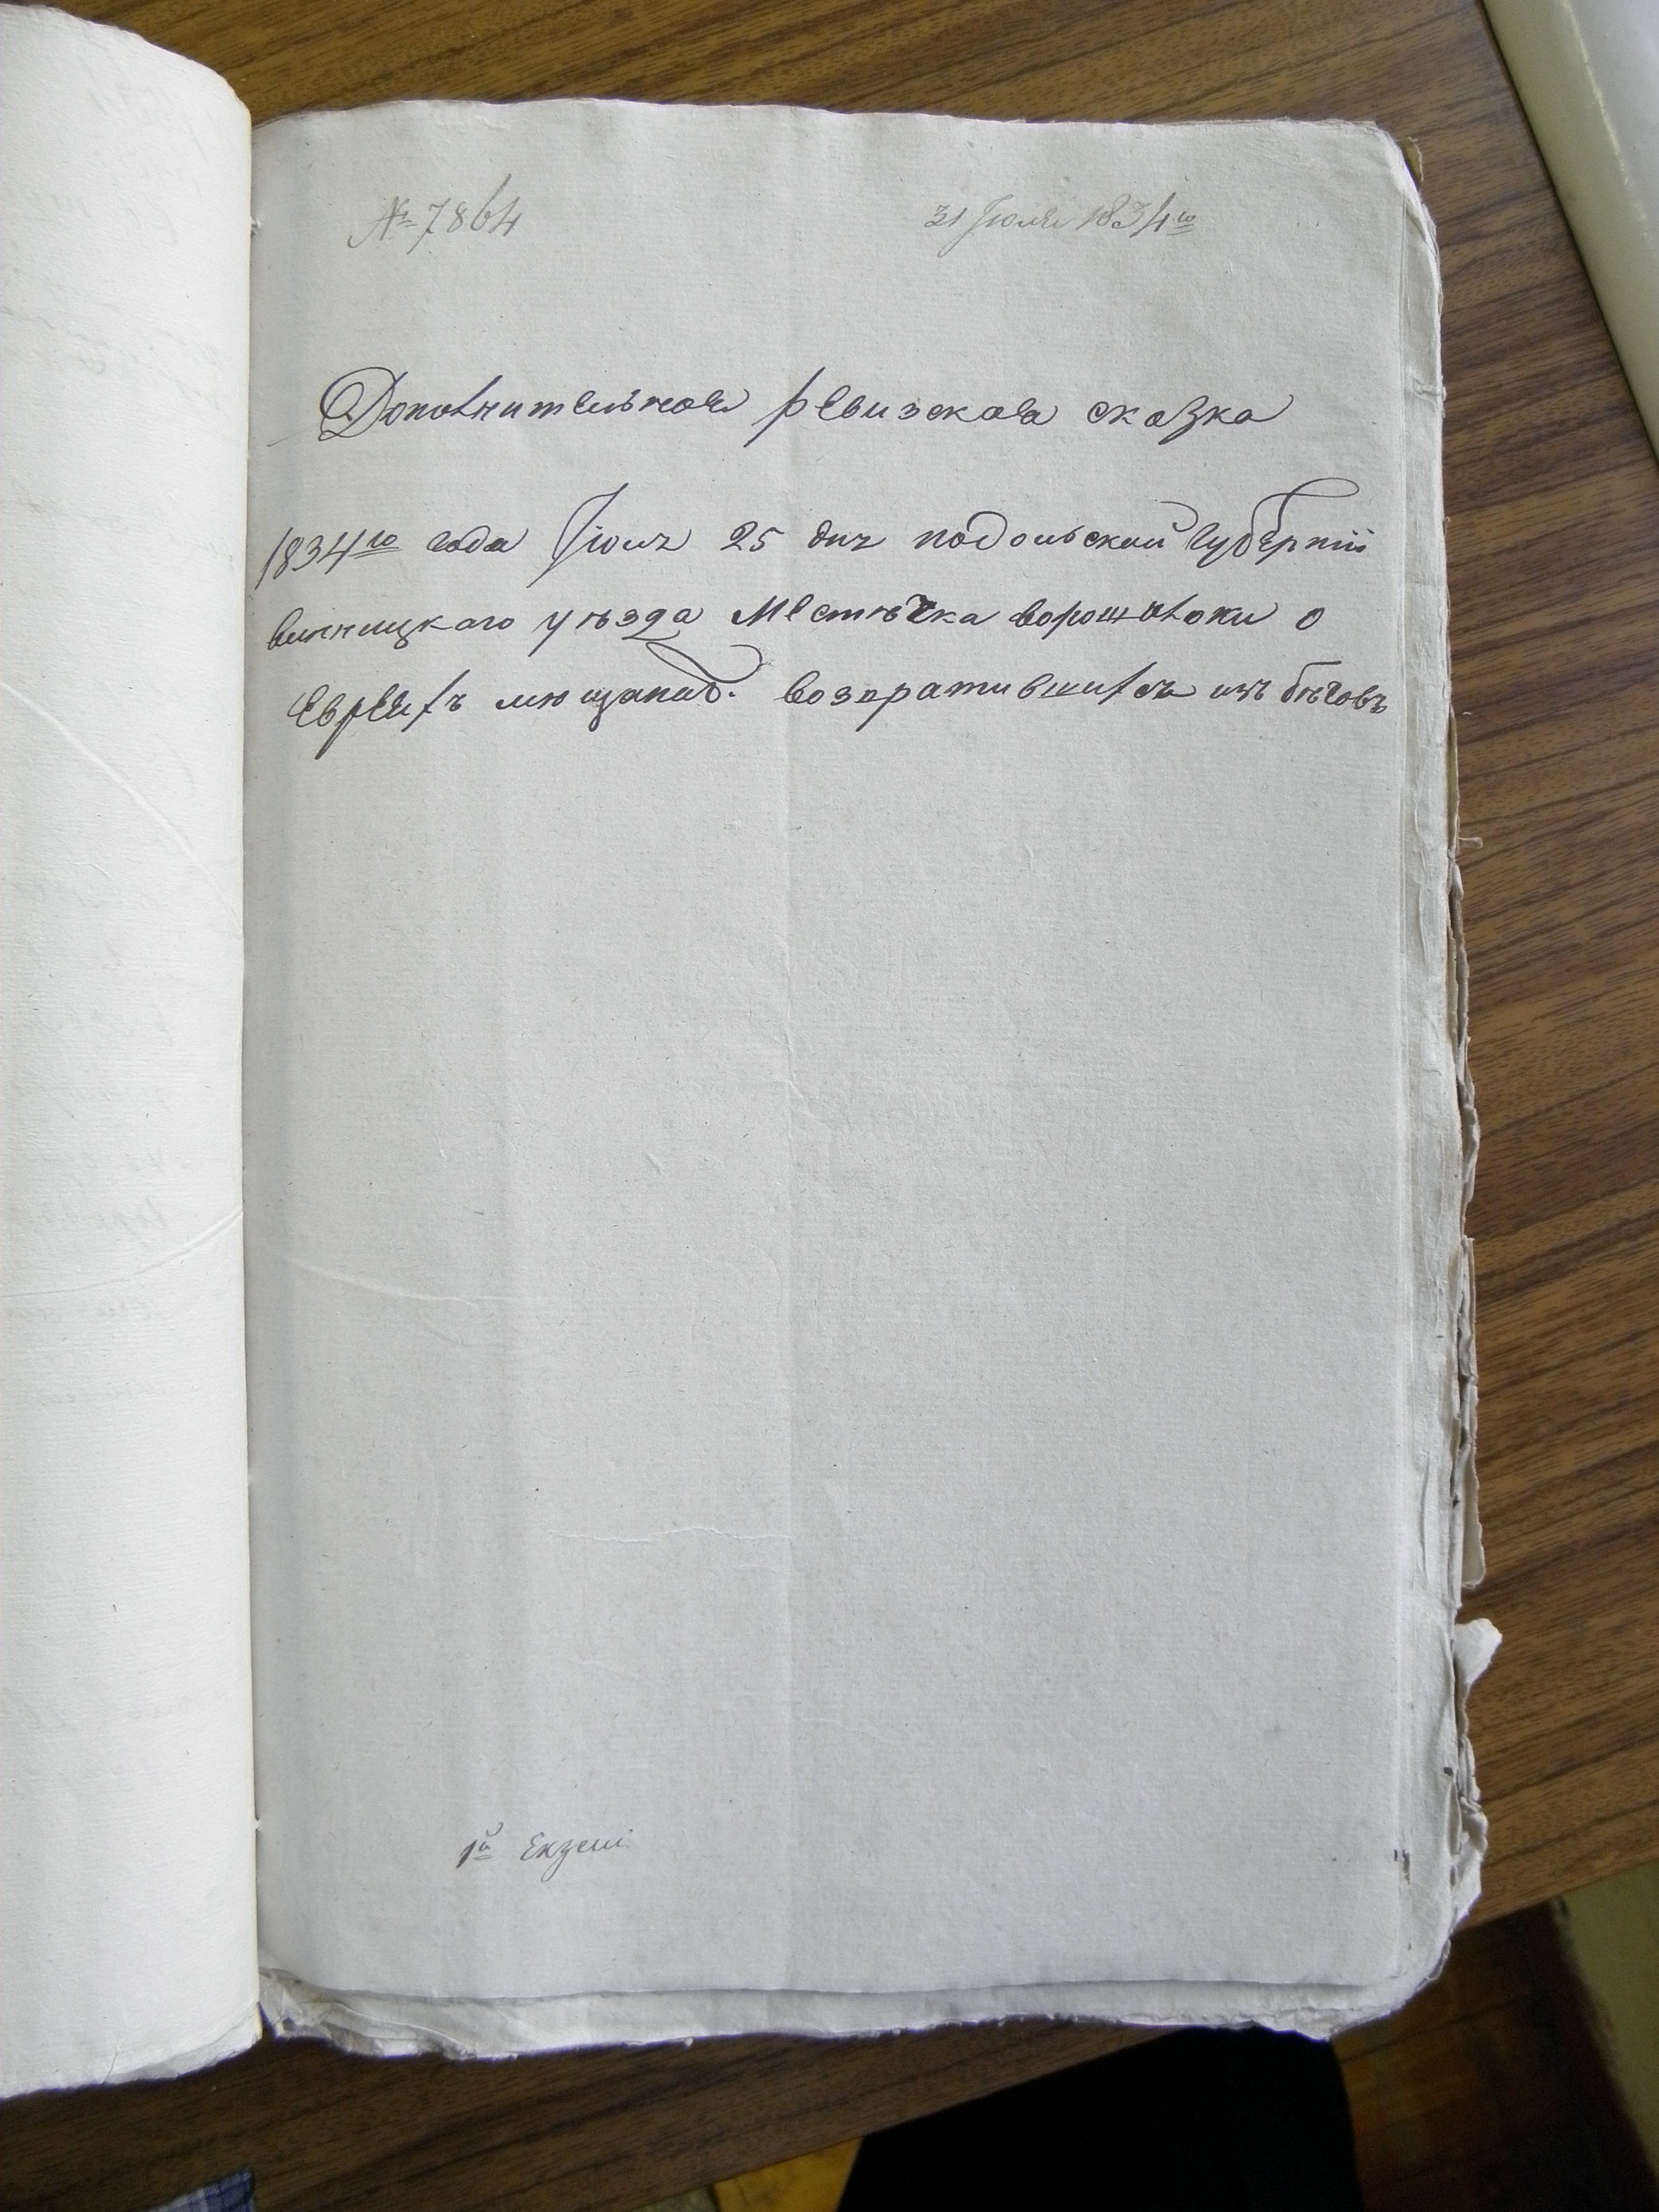 № 7864
31 Іюля 1834го
Дополнительная ревизская сказка
1834го года Іюля 25 дня подольской Губерніи
винницкаго уѣзда Местѣчка ворошиловки о
Евреяхъ мещанахъ. возвратившихся изъ бѣговъ
1й Екзем.